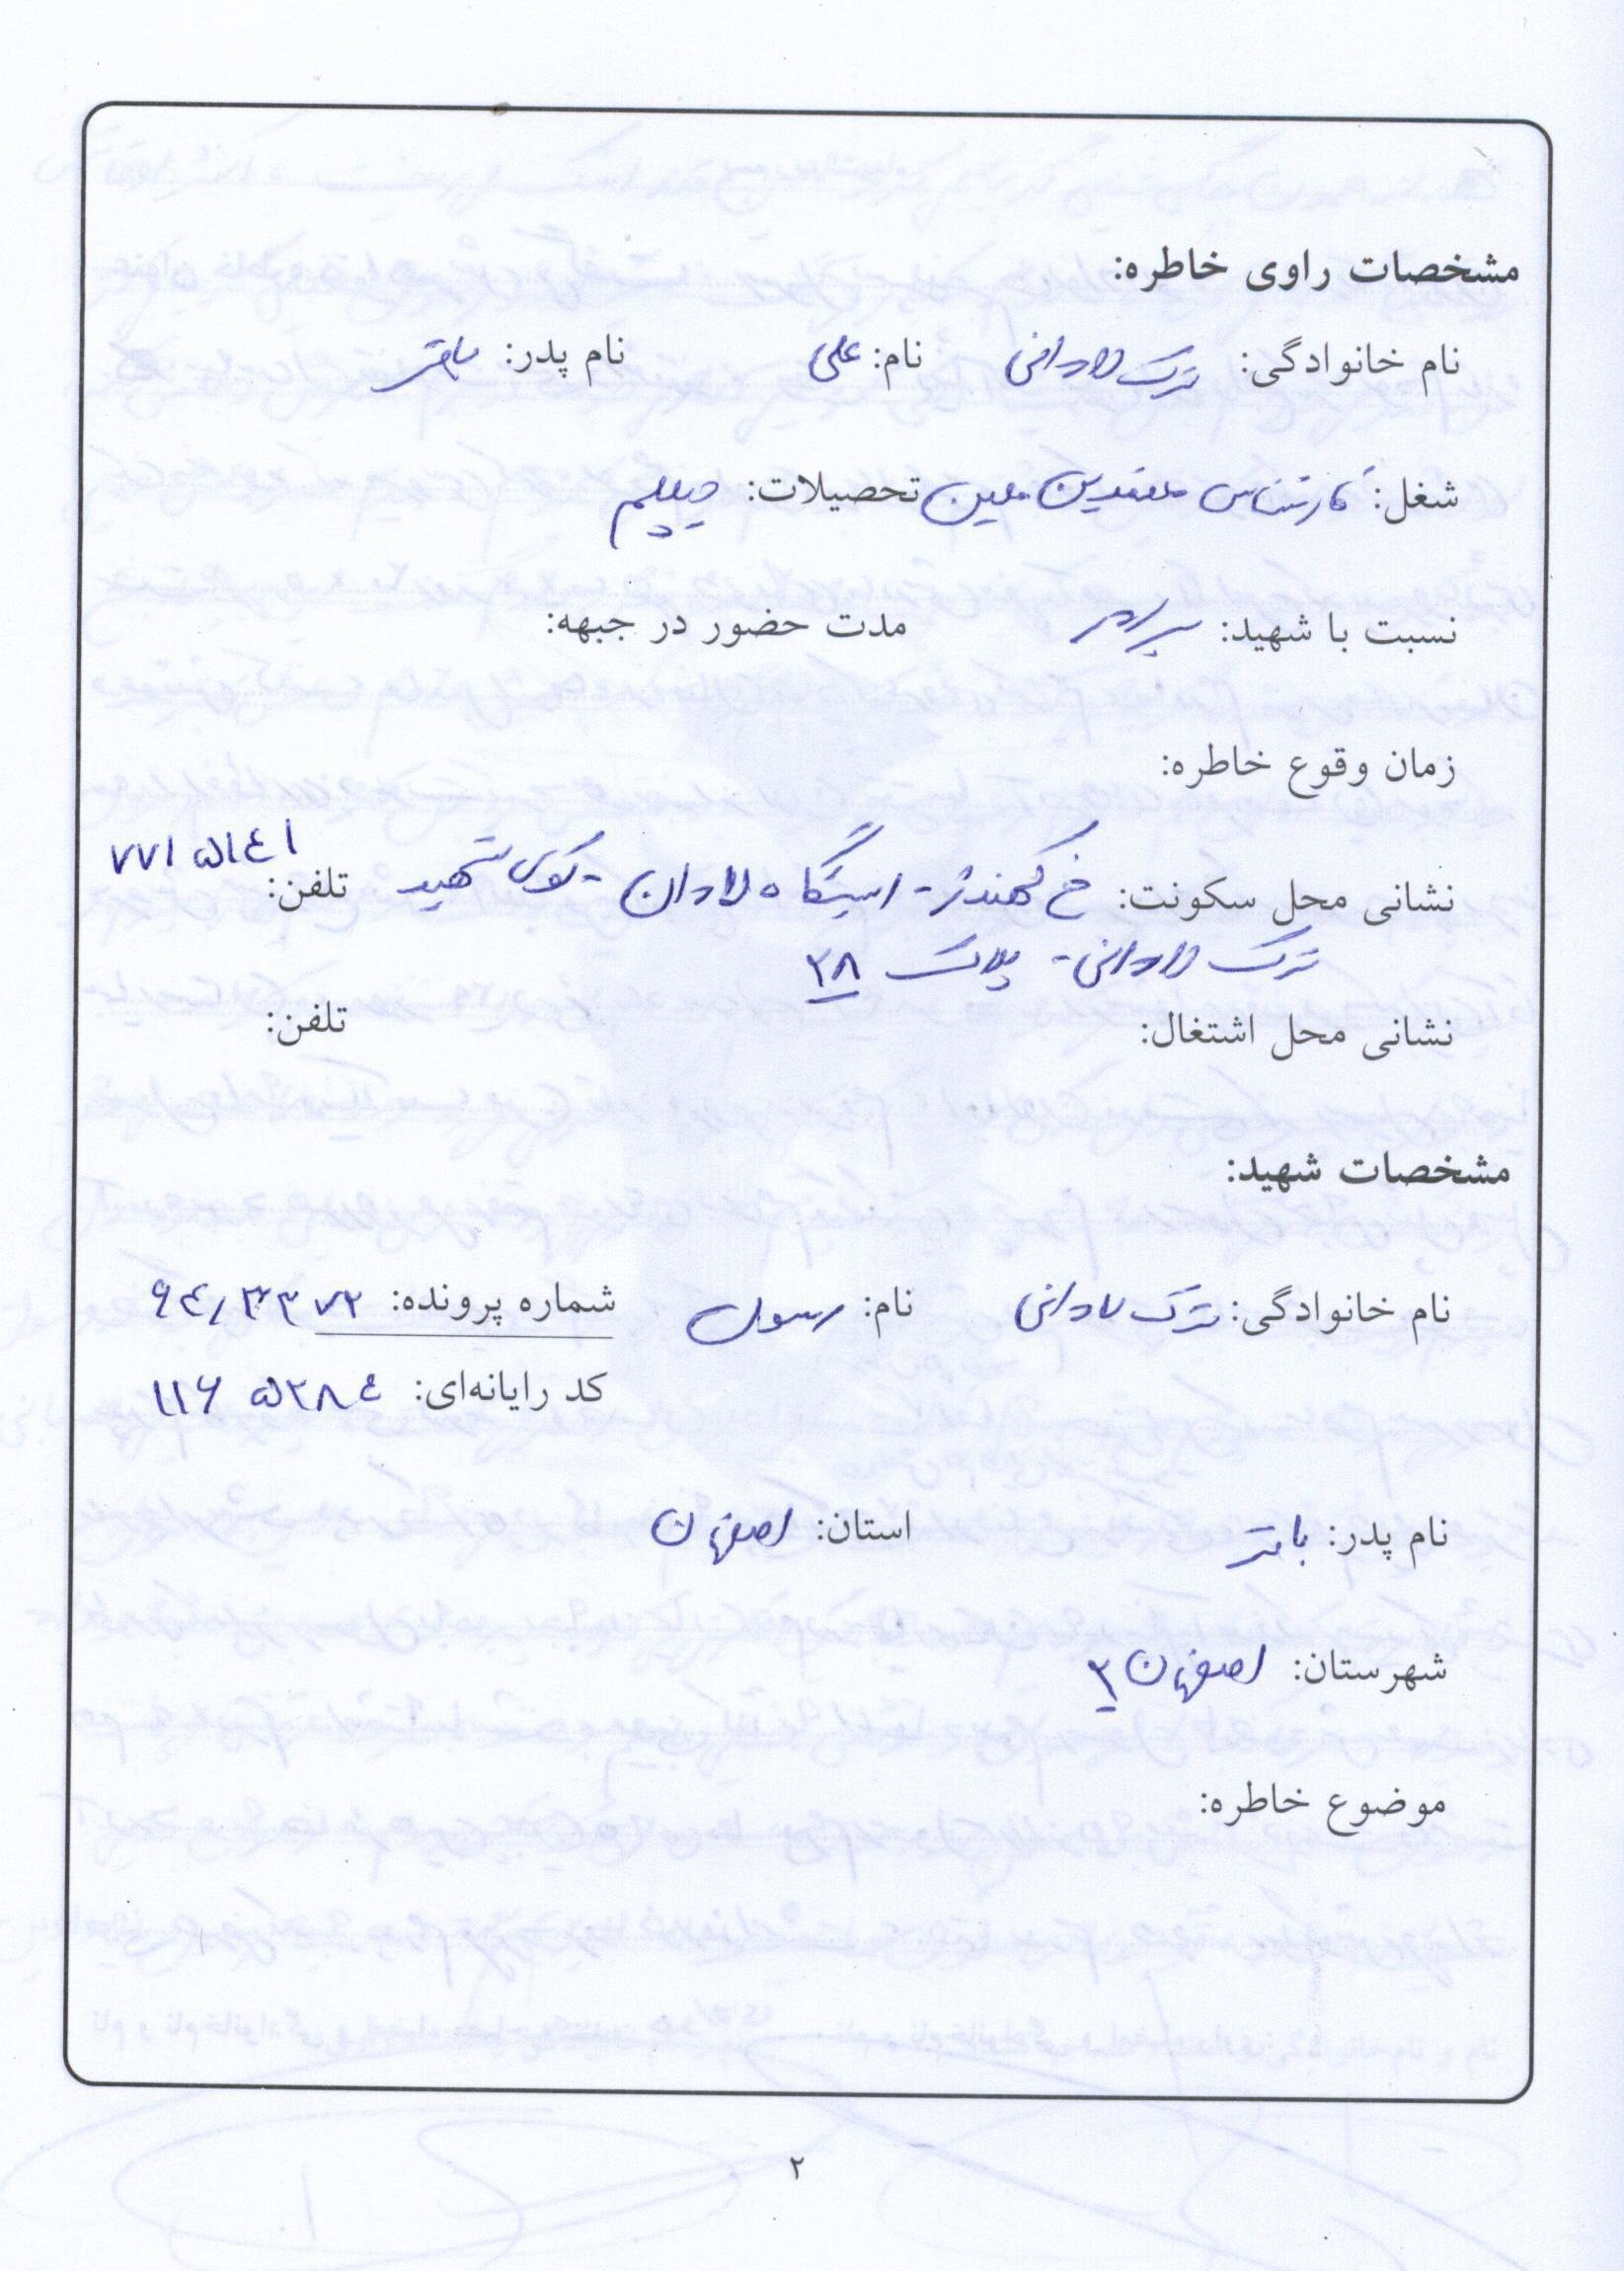 مشخصات راوی خاطره:
نام خانوادگی: ترک لادانی نام: علی نام پدر: باقر
شغل: کارشناس معین تحصیلات: دیپلم
نسبت با شهید: برادر مدت حضور در جبهه:
زمان وقوع خاطره:
نشانی محل سکونت: خ کهندژ - ایستگاه لادان - کوی شهید تلفن: ۷۷۱۵۱۴۱
ترک لادانی - پلاک ۲۸
نشانی محل اشتغال: تلفن:
مشخصات شهید:
نام خانوادگی: ترک لادانی نام: رسول شماره پرونده:
کد رایانه‌ای: ۱۱۶۵۲۸۴
نام پدر: باقر استان: اصفهان
شهرستان: اصفهان ۳
موضوع خاطره:
۲